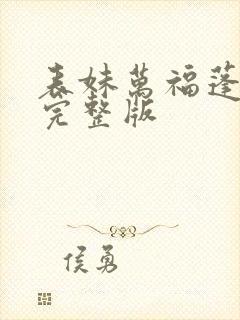 表妹萬福蓬
完整版
侯勇